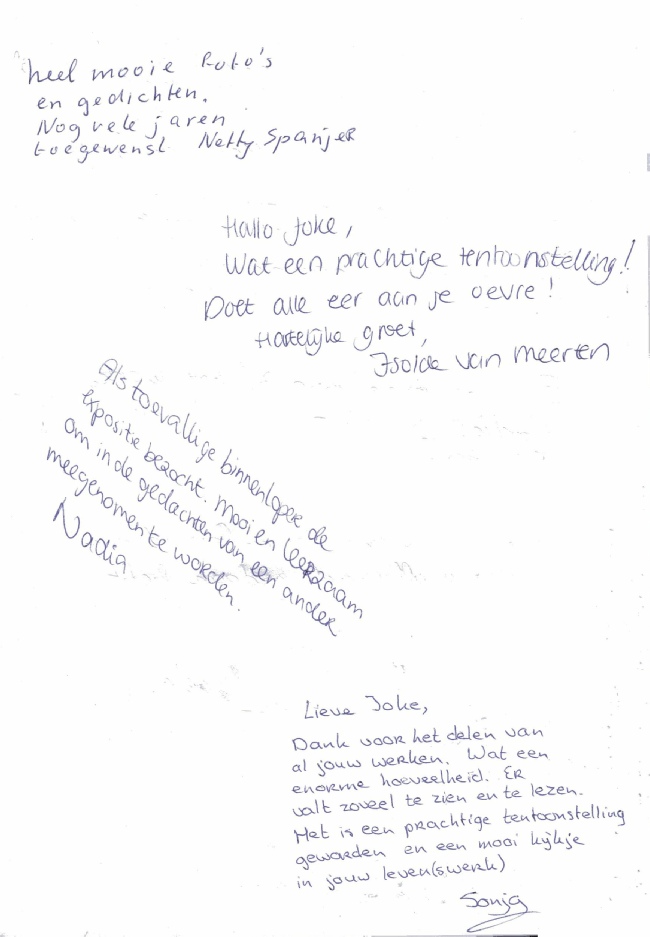 heel mooie foto's
en gedichten.
Nog vele jaren
toegewenst Netty Spanjer
Hallo Joke,
Wat een prachtige tentoonstelling!
Doet alle eer aan je oevre!
Hartelijke groet,
Isolde van Meerten
Als toevallige binnenloper de
expositie bezocht. Mooi en leerzaam
om in de gedachten van een ander
meegenomen te worden.
Nadia
Lieve Joke,
Dank voor het delen van
al jouw werken. Wat een
enorme hoeveelheid. Er
valt zoveel te zien en te lezen.
Het is een prachtige tentoonstelling
geworden en een mooi kijkje
in jouw leven(swerk)
Sonja